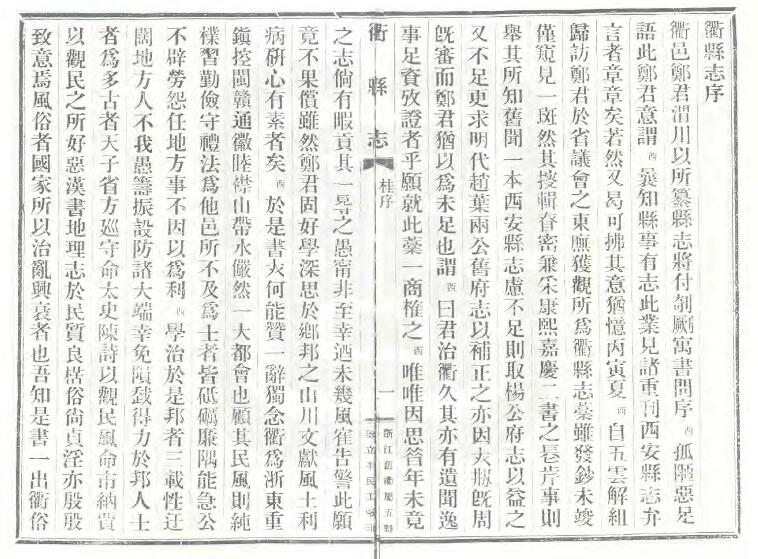 衢縣志序
衢邑鄭君渭川以所纂縣志將付剞劂寓書問序 西 孤陋惡足
語此鄭君意謂 西 曩知縣事有志此業見諸重刊西安縣志弁
言者章章矣若然又曷可拂其意猶憶丙寅夏 西 自五雲解組
歸訪鄭君於省議會之東廡獲觀所爲衢縣志藁雖發鈔未竣
僅窺見一斑然其搜輯眘密兼采康熙嘉慶二書之長片事則
舉其所知舊聞一本西安縣志慮不足則取楊公府志以益之
又不足更求明代趙葉兩公舊府志以補正之亦因大旣周
旣審而鄭君猶以爲未足也謂 西 曰君治衢久其亦有遺聞逸
事足資攷證者乎願就此藁一商榷之 西 唯唯因思昔年未竟
衢縣志
桂序
一
之志倘有暇貢其一之愚甯非至幸迺未幾風寉告警此願
竟不果償雖然鄭君固好學深思於鄉邦之山川文獻風土利
病研心有素者矣 西 於是書夫何能贊一辭獨念衢爲浙東重
鎭控閩贛通徽睦襟山帶水儼然一大都會也顧其民風則純
樸習勤儉守禮法爲他邑所不及爲士者皆砥礪廉隅能急公
不辟勞怨任地方事不因以爲利 西 學治於是邦者三載性迂
闊地方人不我愚籌振設防諸大端幸免隕越得力於邦人士
者爲多古者天子省方巡守命太史陳詩以觀民風命市納賈
以觀民之所好惡漢書地理志於民質良楛俗尙貞淫亦殷殷
致意焉風俗者國家所以治亂興衰者也吾知是書一出衢俗